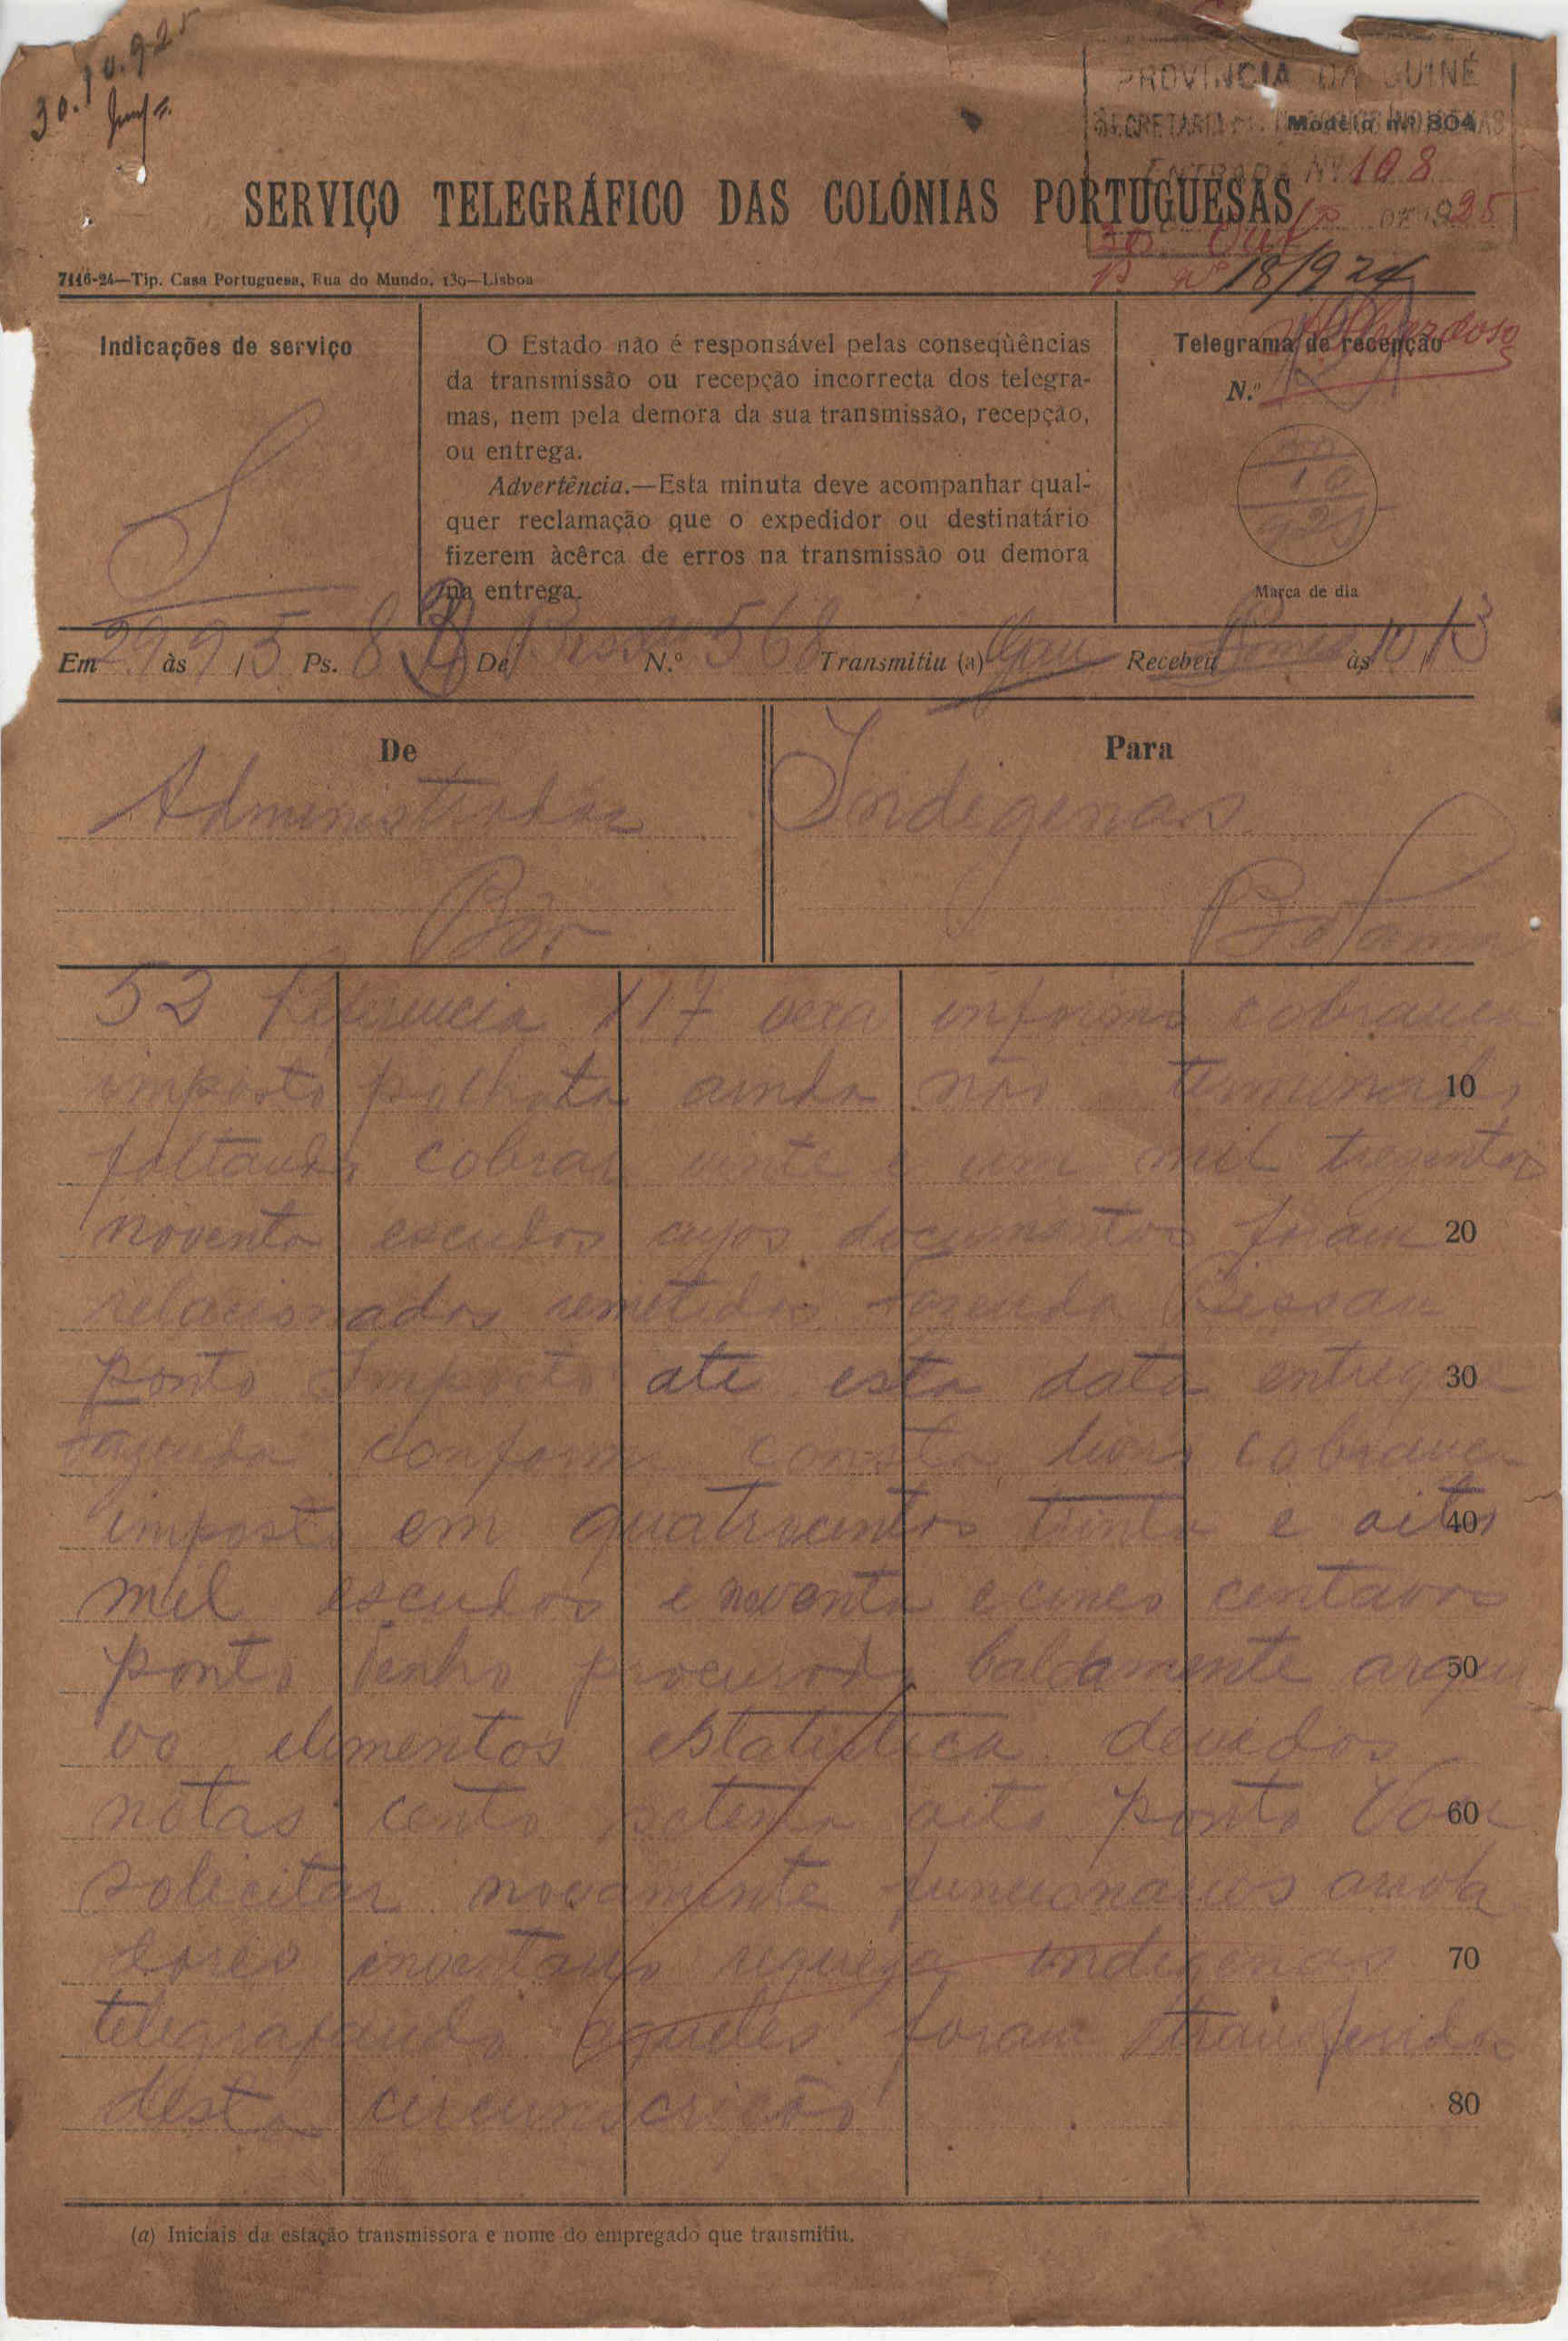 30.10.925
PROVINCIA DA GUINÉ
SECRETARIA
Modêlo n.º 804
ENTRADA Nº 108
SERVIÇO TELEGRÁFICO DAS COLÓNIAS PORTUGUESAS
30 Out DE 1925
7116-24—Tip. Casa Portuguesa, Rua do Mundo, 139—Lisboa
P. nº 18/924
Indicações de serviço
S
O Estado não é responsável pelas conseqùências
da transmissão ou recepção incorrecta dos telegra-
mas, nem pela demora da sua transmissão, recepção,
ou entrega.
Advertência.—Esta minuta deve acompanhar qual-
quer reclamação que o expedidor ou destinatário
fizerem àcêrca de erros na transmissão ou demora
na entrega.
Telegrama de recepção
N.º
10
925
Marca de dia
Em às Ps. De Bissau N.º 568 Transmitiu (a) Recebeu Gomes às 10/13
De
Para
Administrador
Indigenas
Bôr
Bolama
52 Referencia 117 vexa informo cobrança
imposto palhota ainda não terminada
faltando cobrar vinte e um mil trezentos
noventa escudos cujos documentos foram
relacionados remetidos fazenda Bissau
ponto Imposto até esta data entregue
fazenda conforme consta livro cobrança
imposto em quatrocentos trinta e oito
mil escudos e noventa e cinco centavos
ponto Tenho procurado baldamente arqui
vo elementos estatistica devidos
notas cento setenta oito ponto Vou
solicitar novamente funcionarios arrola
dores inventario riqueza indigenas
telegrafando aqueles foram transferidos
desta circunscrição
10
20
30
40
50
60
70
80
(a) Iniciais da estação transmissora e nome do empregado que transmitiu.